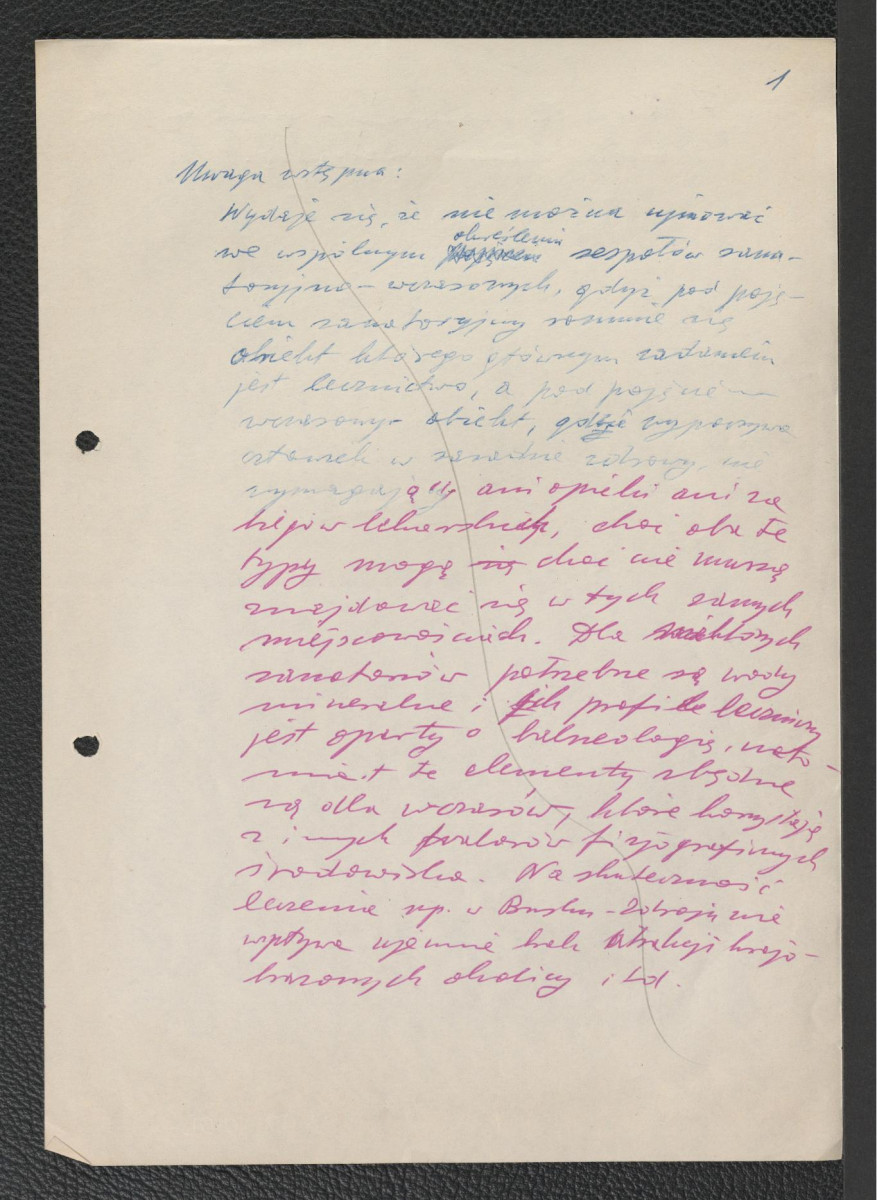 1
Uwaga wstępna:
Wydaje się, że nie można ujmować
określenia
we wspólnym zespołów sana-
toryjno-wczasowych, gdyż pod poję-
ciem sanatoryjny rozumie się
obiekt którego głównym zadaniem
jest lecznictwo, a pod pojęciem
wczasowy - obiekt, gdzie wypoczywa
człowiek w zasadzie zdrowy, nie
wymagający ani opieki ani za
biegów lekarskich, choć oba te
typy mogą się choć nie muszą
znajdować się w tych samych
miejscowościach. Dla
sanatoriów potrzebne są wody
mineralne i ich profil leczniczy
jest oparty o balneologię, nato-
miast te elementy zbędne
są dla wczasów, które korzystają
z innych walorów fizjograficznych
środowiska. Na skuteczność
leczenia np. w Busku-Zdroju nie
wpływa ujemnie brak atrakcji krajo-
brazowych okolicy itd.